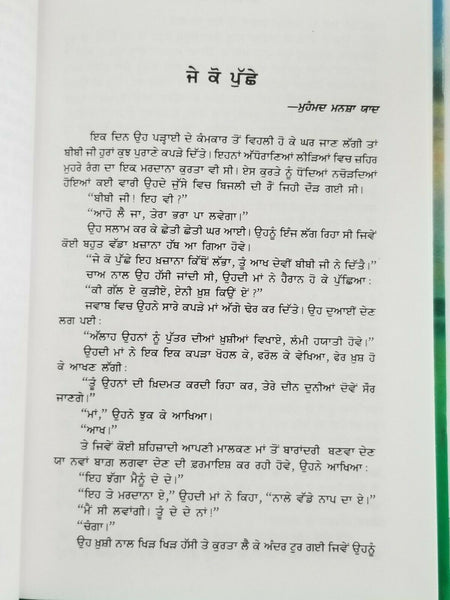 ਜੇ ਕੋ ਪੁੱਛੇ
—ਮੁਹੰਮਦ ਮਨਸ਼ਾ ਯਾਦ
ਇਕ ਦਿਨ ਉਹ ਪੜ੍ਹਾਈ ਦੇ ਕੰਮਕਾਰ ਤੋਂ ਵਿਹਲੀ ਹੋ ਕੇ ਘਰ ਜਾਣ ਲੱਗੀ ਤਾਂ
ਬੀਬੀ ਜੀ ਹੁਰਾਂ ਕੁਝ ਪੁਰਾਣੇ ਕਪੜੇ ਦਿੱਤੇ। ਇਹਨਾਂ ਅੱਧੋਰਾਣਿਆਂ ਲੀੜਿਆਂ ਵਿਚ ਜ਼ਹਿਰ
ਮੁਹਰੇ ਰੰਗ ਦਾ ਇਕ ਮਰਦਾਨਾ ਕੁਰਤਾ ਵੀ ਸੀ। ਏਸ ਕੁਰਤੇ ਨੂੰ ਧੋਂਦਿਆਂ ਨਚੋੜਦਿਆਂ
ਹੋਇਆਂ ਕਈ ਵਾਰੀ ਉਹਦੇ ਜੁੱਸੇ ਵਿਚ ਬਿਜਲੀ ਦੀ ਰੌਂ ਜਿਹੀ ਦੌੜ ਗਈ ਸੀ।
“ਬੀਬੀ ਜੀ! ਇਹ ਵੀ?”
“ਆਹੋ ਲੈ ਜਾ, ਤੇਰਾ ਭਰਾ ਪਾ ਲਵੇਗਾ।”
ਉਹ ਸਲਾਮ ਕਰ ਕੇ ਛੇਤੀ ਛੇਤੀ ਘਰ ਆਈ। ਉਹਨੂੰ ਇੰਜ ਲੱਗ ਰਿਹਾ ਸੀ ਜਿਵੇਂ
ਕੋਈ ਬਹੁਤ ਵੱਡਾ ਖ਼ਜ਼ਾਨਾ ਹੱਥ ਆ ਗਿਆ ਹੋਵੇ।
“ਜੇ ਕੋ ਪੁੱਛੇ ਇਹ ਖ਼ਜ਼ਾਨਾ ਕਿੱਥੋਂ ਲੱਭਾ, ਤੂੰ ਆਖ ਦੇਵੀਂ ਬੀਬੀ ਜੀ ਨੇ ਦਿੱਤੈ।”
ਚਾਅ ਨਾਲ ਉਹ ਹੱਸੀ ਜਾਂਦੀ ਸੀ, ਉਹਦੀ ਮਾਂ ਨੇ ਹੈਰਾਨ ਹੋ ਕੇ ਪੁੱਛਿਆ :
“ਕੀ ਗੱਲ ਏ ਕੁੜੀਏ, ਏਨੀ ਖ਼ੁਸ਼ ਕਿਉਂ ਏਂ?”
ਜਵਾਬ ਵਿਚ ਉਹਨੇ ਸਾਰੇ ਕਪੜੇ ਮਾਂ ਅੱਗੇ ਢੇਰ ਕਰ ਦਿੱਤੇ। ਉਹ ਦੁਆਈਂ ਦੇਣ
ਲਗ ਪਈ :
“ਅੱਲਾਹ ਉਹਨਾਂ ਨੂੰ ਪੁੱਤਰ ਦੀਆਂ ਖ਼ੁਸ਼ੀਆਂ ਵਿਖਾਏ, ਲੰਮੀ ਹਯਾਤੀ ਹੋਵੇ।”
ਉਹਦੀ ਮਾਂ ਨੇ ਇਕ ਇਕ ਕਪੜਾ ਖੋਹਲ ਕੇ, ਫਰੋਲ ਕੇ ਵੇਖਿਆ, ਫੇਰ ਖ਼ੁਸ਼ ਹੋ
ਕੇ ਆਖਣ ਲੱਗੀ :
“ਤੂੰ ਉਹਨਾਂ ਦੀ ਖ਼ਿਦਮਤ ਕਰਦੀ ਰਿਹਾ ਕਰ, ਤੇਰੇ ਦੀਨ ਦੁਨੀਆਂ ਦੋਵੇਂ ਸੌਰ
ਜਾਣਗੇ।”
“ਮਾਂ,” ਉਹਨੇ ਝੁਕ ਕੇ ਆਖਿਆ।
“ਆਖ।”
ਤੇ ਜਿਵੇਂ ਕੋਈ ਸ਼ਹਿਜ਼ਾਦੀ ਆਪਣੀ ਮਾਲਕਣ ਮਾਂ ਤੋਂ ਬਾਰਾਂਦਰੀ ਬਣਵਾ ਦੇਣ
ਯਾ ਨਵਾਂ ਬਾਗ਼ ਲਗਵਾ ਦੇਣ ਦੀ ਫ਼ਰਮਾਇਸ਼ ਕਰ ਰਹੀ ਹੋਵੇ, ਉਹਨੇ ਆਖਿਆ :
“ਇਹ ਝੱਗਾ ਮੈਨੂੰ ਦੇ ਦੇ।”
“ਇਹ ਤੇ ਮਰਦਾਨਾ ਏ,” ਉਹਦੀ ਮਾਂ ਨੇ ਕਿਹਾ, “ਨਾਲੇ ਵੱਡੇ ਨਾਪ ਦਾ ਏ।”
“ਮੈਂ ਸੀ ਲਵਾਂਗੀ। ਤੂੰ ਦੇ ਦੇ ਨਾਂ!”
“ਚੰਗਾ।”
ਉਹ ਖ਼ੁਸ਼ੀ ਨਾਲ ਖਿੜ ਖਿੜ ਹੱਸੀ ਤੇ ਕੁਰਤਾ ਲੈ ਕੇ ਅੰਦਰ ਟੁਰ ਗਈ ਜਿਵੇਂ ਉਹਨੂੰ